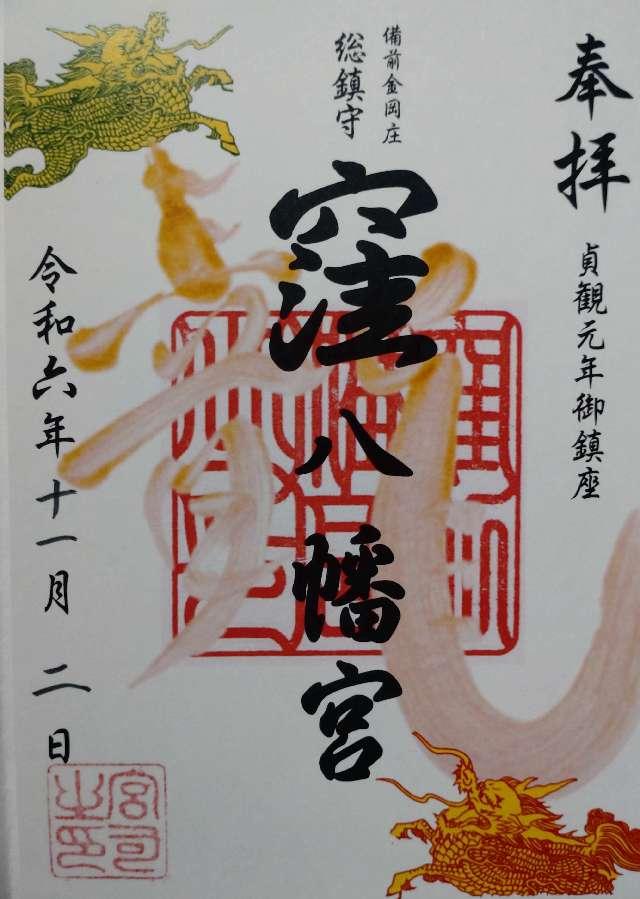 奉拝
貞観元年御鎮座
備前金岡庄
総鎮守
窪八幡宮
令和六年十一月二日
宮司之印